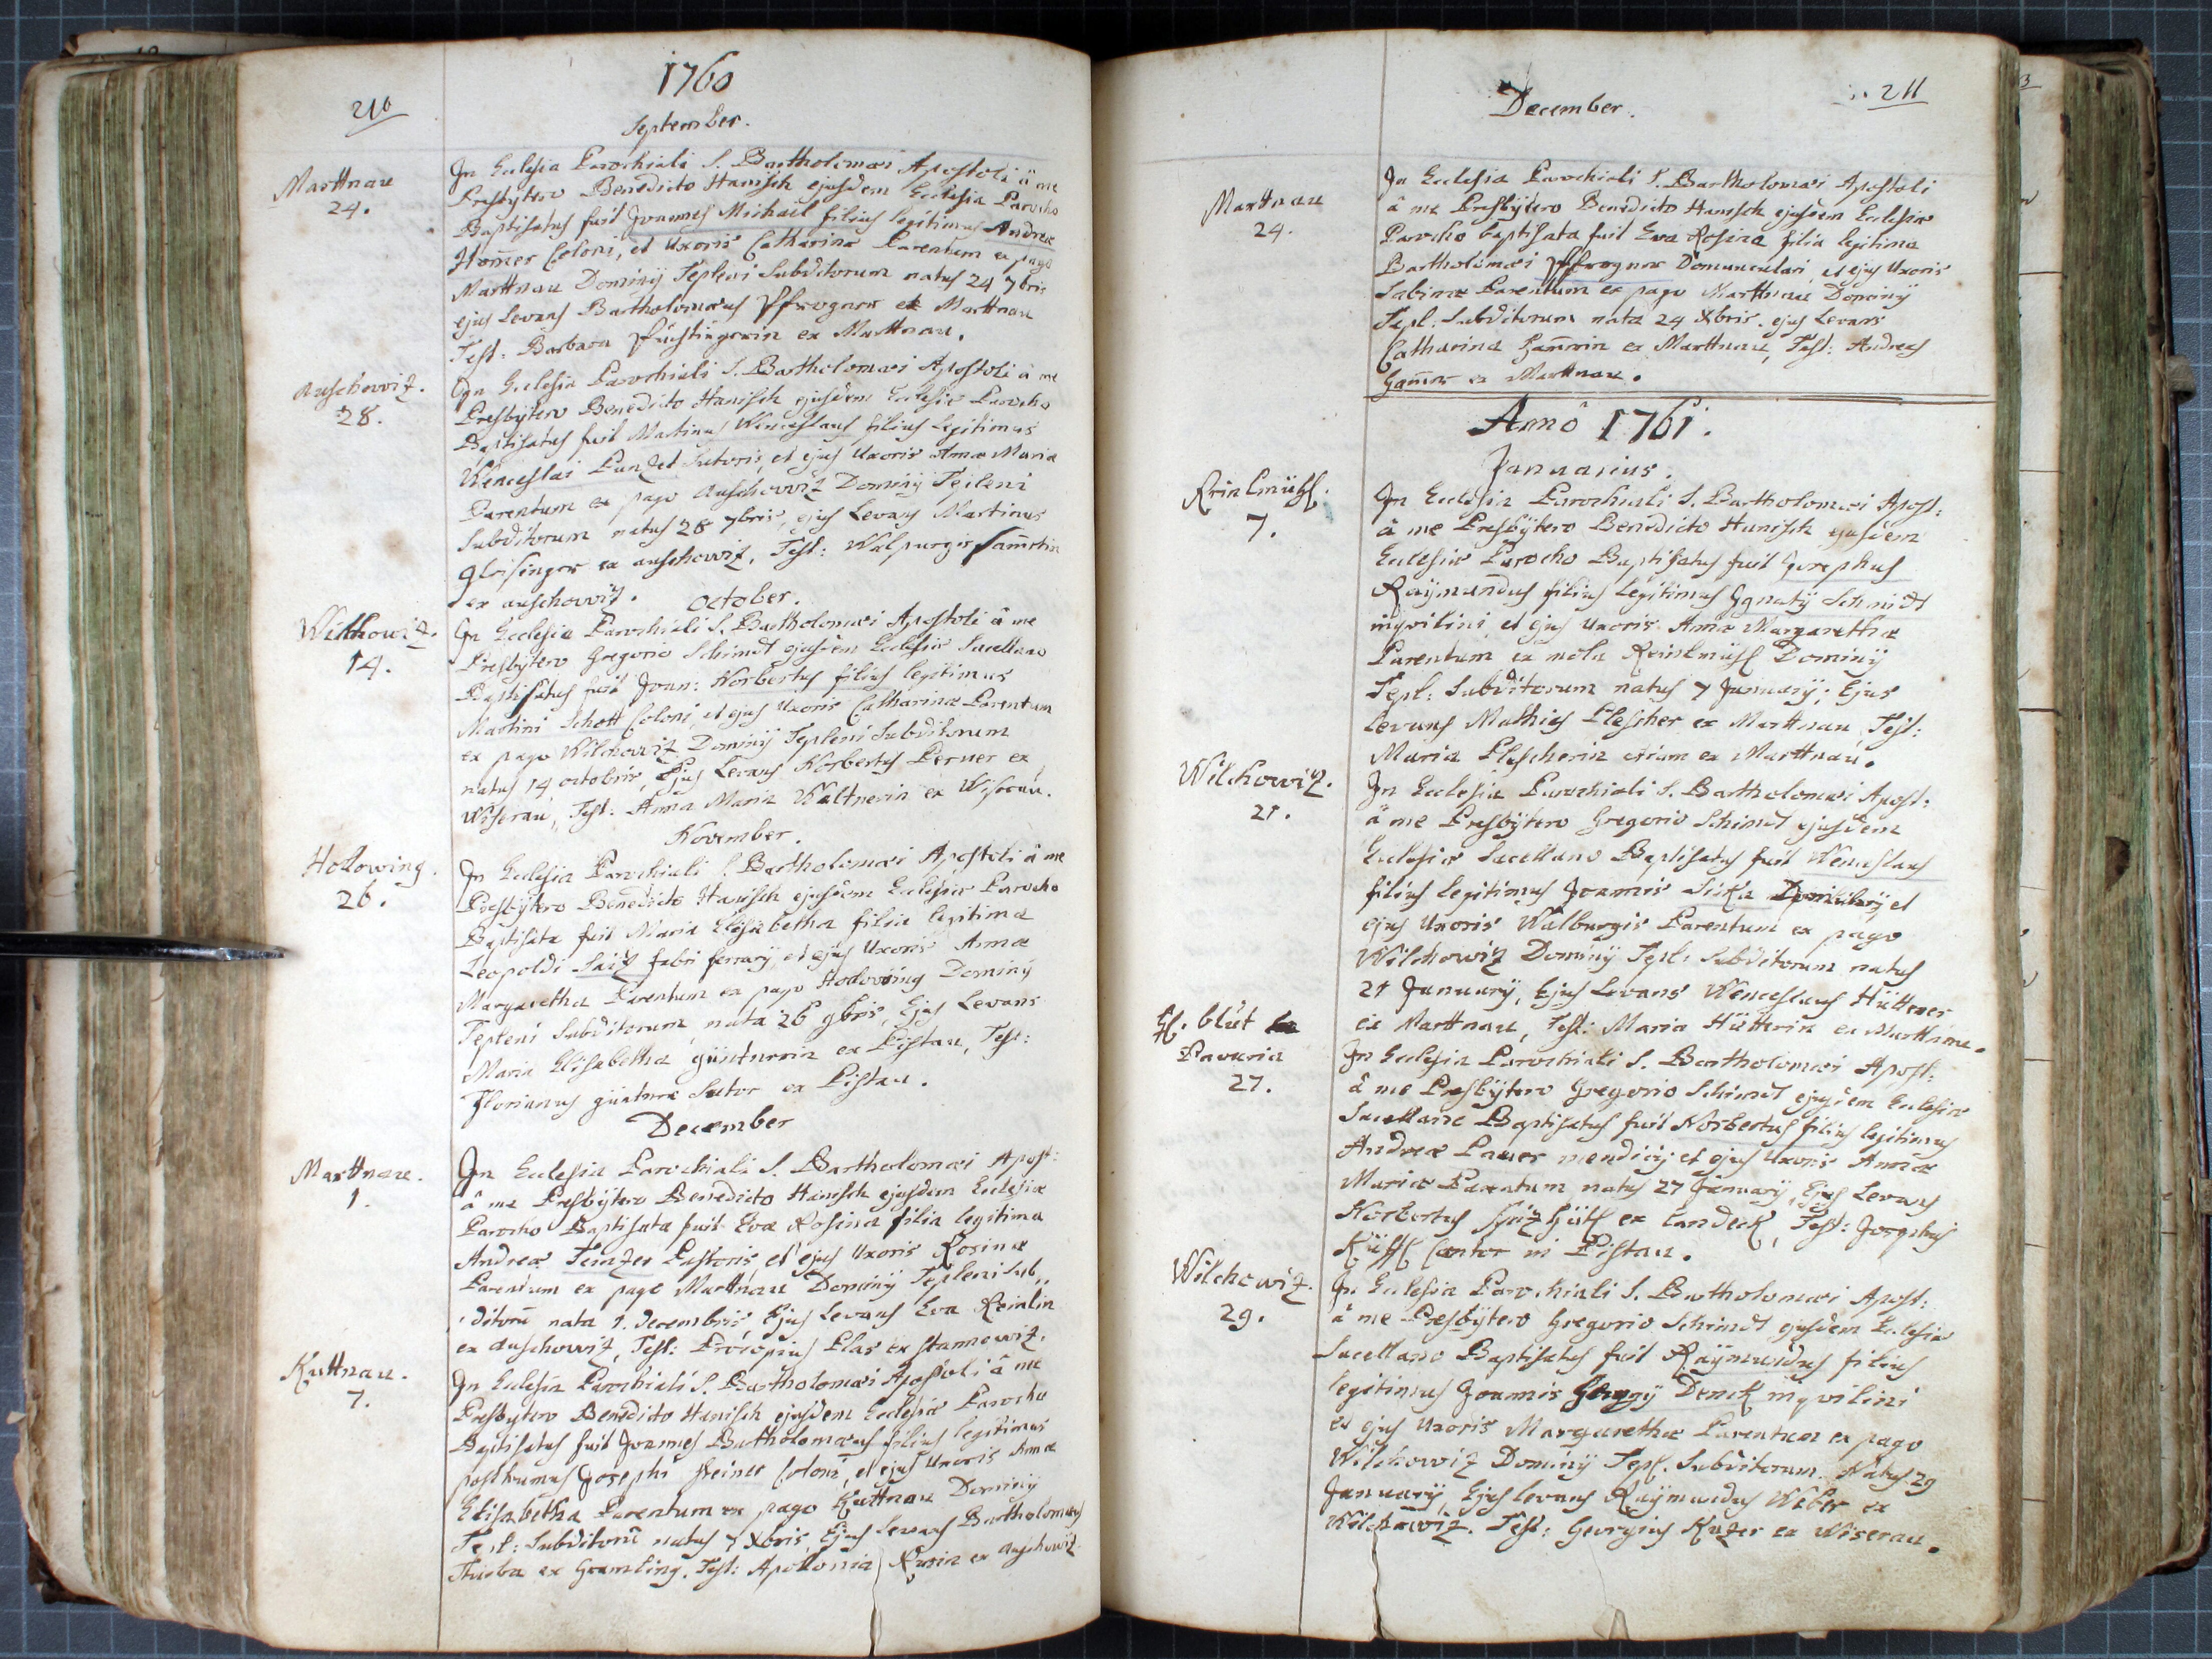 210
1760
September.
Marttnau
24.
In Ecclesia Parochiali S. Bartholomæi Apostoli â me
Presbytero Benedicto Hanisch ejusdem Ecclesiæ Parocho
Baptisatus fuit Joannes Michaël filius legitimus Andreæ
Coloni, et Uxoris Catharinæ Parentum ex pago
Marttnau Dominÿ Tepleni Subditorum natus 24 7bris
ejus Levans Bartholomæus Pfrogner ex Marttnau
Test: Barbara ex Marttnau.
Auschowiz.
28.
In Ecclesia Parochiali S. Bartholomæi Apostoli â me
Presbÿtero Benedicto Hanisch ejusdem Ecclesiæ Parocho
Baptisatus fuit Martinus Wenceslaus filius Legitimus
Wenceslai Sutoris, et ejus Uxoris Annæ Mariæ
Parentum ex pago Auschowiz Dominÿ Tepleni
Subditorum natus 28 7bris, ejus Levans Martinus
Gleisinger ex auschowiz, Test: Walpurgis
ex auschowiz.
October.
Wilkowiz.
14.
In Ecclesia Parochiali S. Bartholomæi Apostoli â me
Presbÿtero Gregorio Schimdt ejusdem Ecclesiæ Sacellano
Baptisatus fuit Joan: Norbertus filius legitimus
Martini Schott Coloni, et ejus Uxoris Catharinæ Parentum
ex pago Wilchowiz Dominÿ Tepleni Subditorum
natus 14 octobris, Ejus Levans Norbertus Perner ex
Wiserau, Test: Anna Maria Waltnerin ex Wiserau.
November.
Holowing.
26.
In Ecclesia Parochiali S. Bartholomæi Apostoli â me
Presbÿtero Benedicto Hanisch ejusdem Ecclesiæ Parocho
Baptisata fuit Maria Elisabetha filia legitima
Leopoldi Saiz fabri ferrarÿ, et ejus Uxoris Annæ
Margaretha Parentum ex pago Holowing Dominÿ
Tepleni Subditorum, nata 26 9bris, Ejus Levans
Maria Elisabetha güntnerin ex Pistau, Test:
Florianus güntner Sutor ex Pistau.
December
Marttnau.
1.
In Ecclesia Parochiali S. Bartholomæi Apost:
â me Presbÿtero Benedicto Hanisch ejusdem Ecclesiæ
Parocho Baptisata fuit Eva Rosina filia legitima
Andreæ Pastoris, et ejus Uxoris Rosinæ
Parentum ex pago Marttnau Dominÿ Tepleni Sub,,
ditorū nata 1. Decembris, Ejus Levans Eva Reinlin
ex Auschowiz, Test: Procopius Plas ex Stannowiz.
Kuttnau.
7.
In Ecclesia Parochiali S. Bartholomæi Apostoli â me
Presbytero Benedicto Hanisch ejusdem Ecclesiæ Parocho
Baptisatus fuit Joannes Bartholomæus filius legitimus
posthumus Josephi Steiner Coloni, et ejus Uxoris Annæ
Elisabetha Parentum ex pago Kuttnau Dominÿ
Tepl: Subditorū natus 7 Xbris, Ejus Levans Bartholomæus
ex Gramling. Test: Apollonia ex Auschowiz.
211
December.
Marttnau
24.
In Ecclesia Parochiali S. Bartholomæi Apostoli
â me Presbÿtero Benedicto Hanisch ejusdem Ecclesiæ
Parocho baptisata fuit Eva Rosina filia legitima
Bartholomæi Pfrogner Domuncularii, et ejus Uxoris
Sabinæ Parentum ex pago Marttnau Dominÿ
Tepl: Subditorum nata 24 Xbris. ejus Levans
Catharina Ham̄erin ex Marttnau, Test: Andreas
Ham̄er ex Marttnau.
Anno 1761.
Januarius.
Reinlmühl.
7.
In Ecclesia Parochiali S. Bartholomæi Apost:
â me Presbÿtero Benedicto Hanisch ejusdem
Ecclesiæ Parocho Baptisatus fuit Josephus
Raÿmundus filius Legitimus Ignatÿ Schmidt
inqvilini et ejus Uxoris Annæ Margarethæ
Parentum ex mola Reinlmühl Dominÿ
Tepl: Subditorum natus 7 Januarÿ; Ejus
Levans Mathias Plescher ex Marttnau Test:
Maria Plescherin etiam ex Marttnau.
Wilchowiz.
21.
In Ecclesia Parochiali S. Bartholomæi Apost:
â me Presbÿtero Gregorio Schimdt ejusdem
Ecclesiæ Sacellano Baptisatus fuit Wenceslaus
filius legitimus Joannis et
ejus Uxoris Walburgis Parentum ex pago
Wilchowiz Dominÿ Tepl: Subditorum natus
21 Januarÿ, Ejus Levans Wenceslaus Hüttner
ex Marttnau, Test: Maria Hütterin ex Marttnau.
Hl. blut
Bavaria
27.
In Ecclesia Parochiali S. Bartholomæi Apost:
â me Presbÿtero Gregorio Schimdt ejusdem Ecclesiæ
Sacellano Baptisatus fuit Norbertus filius legitimus
Andreæ Pauer mendici, et ejus Uxoris Annæ
Mariæ Parentum, natus 27 Januarÿ, Ejus Levans
Norbertus ex Landeck, Test: Josephus
Cantor in Pistau.
Wilchowiz.
29.
In Ecclesia Parochiali S. Bartholomæi Apost:
â me Presbÿtero Gregorio Schimdt ejusdem Ecclesiæ
Sacellano Baptisatus fuit Raÿmundus filius
legitimus Joannis Georgÿ Denck inqvilini
et ejus Uxoris Margarethæ Parentum ex pago
Wilchowiz Dominÿ Tepl. Subditorum. Natus 29
Januarÿ, Ejus Levans Raÿmundus Weber ex
Wilchowiz. Test: Georgius Kuzer ex Wiserau.